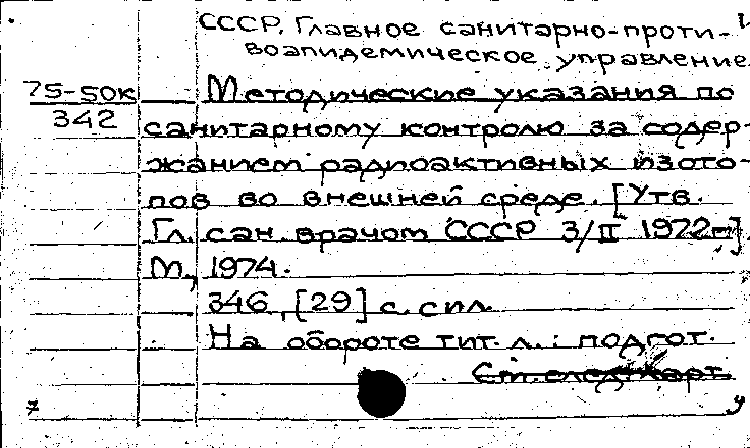 СССР. Главное санитарно-проти-
воэпидемическое управление
75-50к
342
Методические указания по
санитарному контролю за содер-
жанием радиоактивных изото-
пов во внешней среде. [Утв.
Гл. сан. врачом СССР 3/II 1972г.]
М., 1974.
346, [29] с. с ил.
На обороте тит. л.: подгот.
См. след. карт.